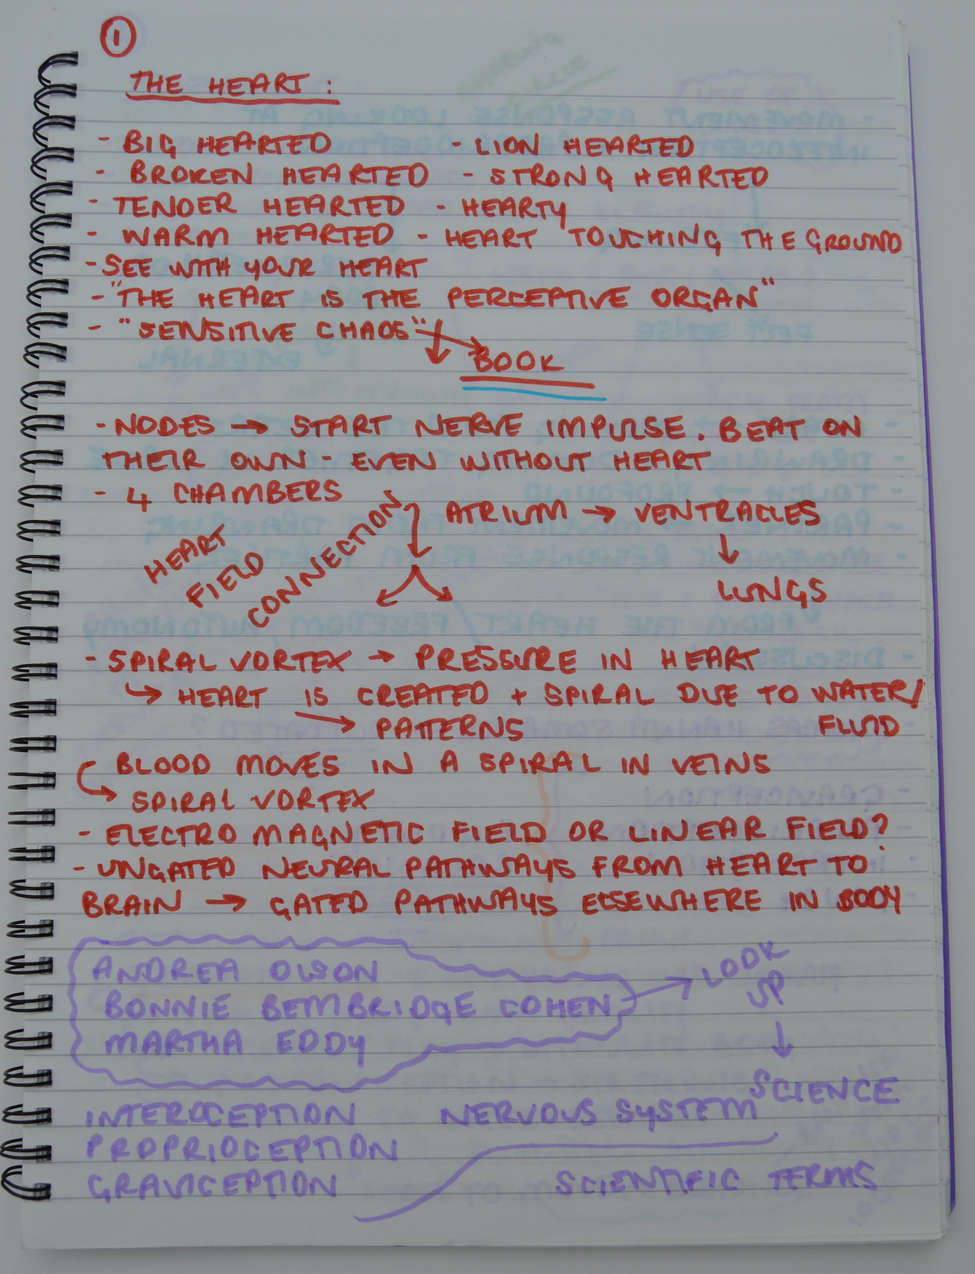 1
THE HEART:
- BIG HEARTED - LION HEARTED
- BROKEN HEARTED - STRONG HEARTED
- TENDER HEARTED - HEARTY
- WARM HEARTED - HEART TOUCHING THE GROUND
- SEE WITH YOUR HEART
- "THE HEART IS THE PERCEPTIVE ORGAN"
- "SENSITIVE CHAOS"
BOOK
- NODES → START NERVE IMPULSE. BEAT ON
THEIR OWN - EVEN WITHOUT HEART
- 4 CHAMBERS
ATRIUM → VENTRACLES
↓
LUNGS
HEART
FIELD
CONNECTION
- SPIRAL VORTEX → PRESSURE IN HEART
↳ HEART IS CREATED + SPIRAL DUE TO WATER/
→ PATTERNS FLUID
BLOOD MOVES IN A SPIRAL IN VEINS
↳ SPIRAL VORTEX
- ELECTRO MAGNETIC FIELD OR LINEAR FIELD?
- UNGATED NEURAL PATHWAYS FROM HEART TO
BRAIN → GATED PATHWAYS ELSEWHERE IN BODY
ANDREA OLSON
BONNIE BEMBRIDGE COHEN → LOOK
UP
MARTHA EDDY
↓
SCIENCE
INTEROCEPTION NERVOUS SYSTEM
PROPRIOCEPTION
GRAVICEPTION SCIENTIFIC TERMS